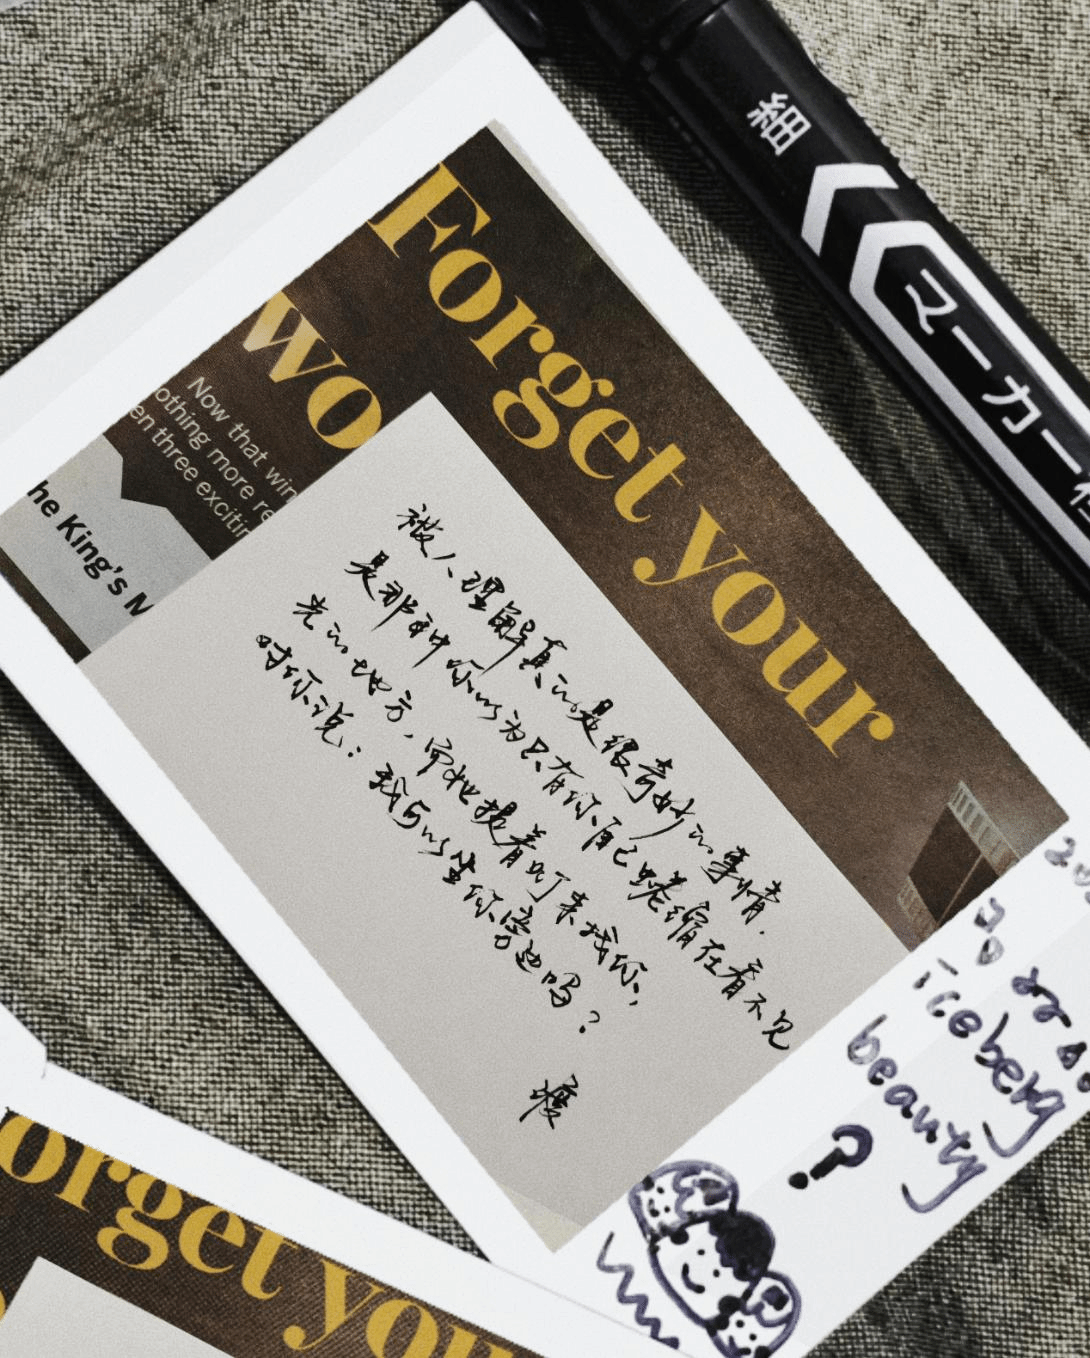 細
マーカー
Forget your
wo
Now that win
othing more re
en three excitin
he King's M
被人理解真的是很奇妙的事情.
是那种你以为只有你自己蜷缩在看不见
光的地方,而她提着灯来找你,
对你说:我可以坐你旁边吗?
iceberg
beauty
?
orget you